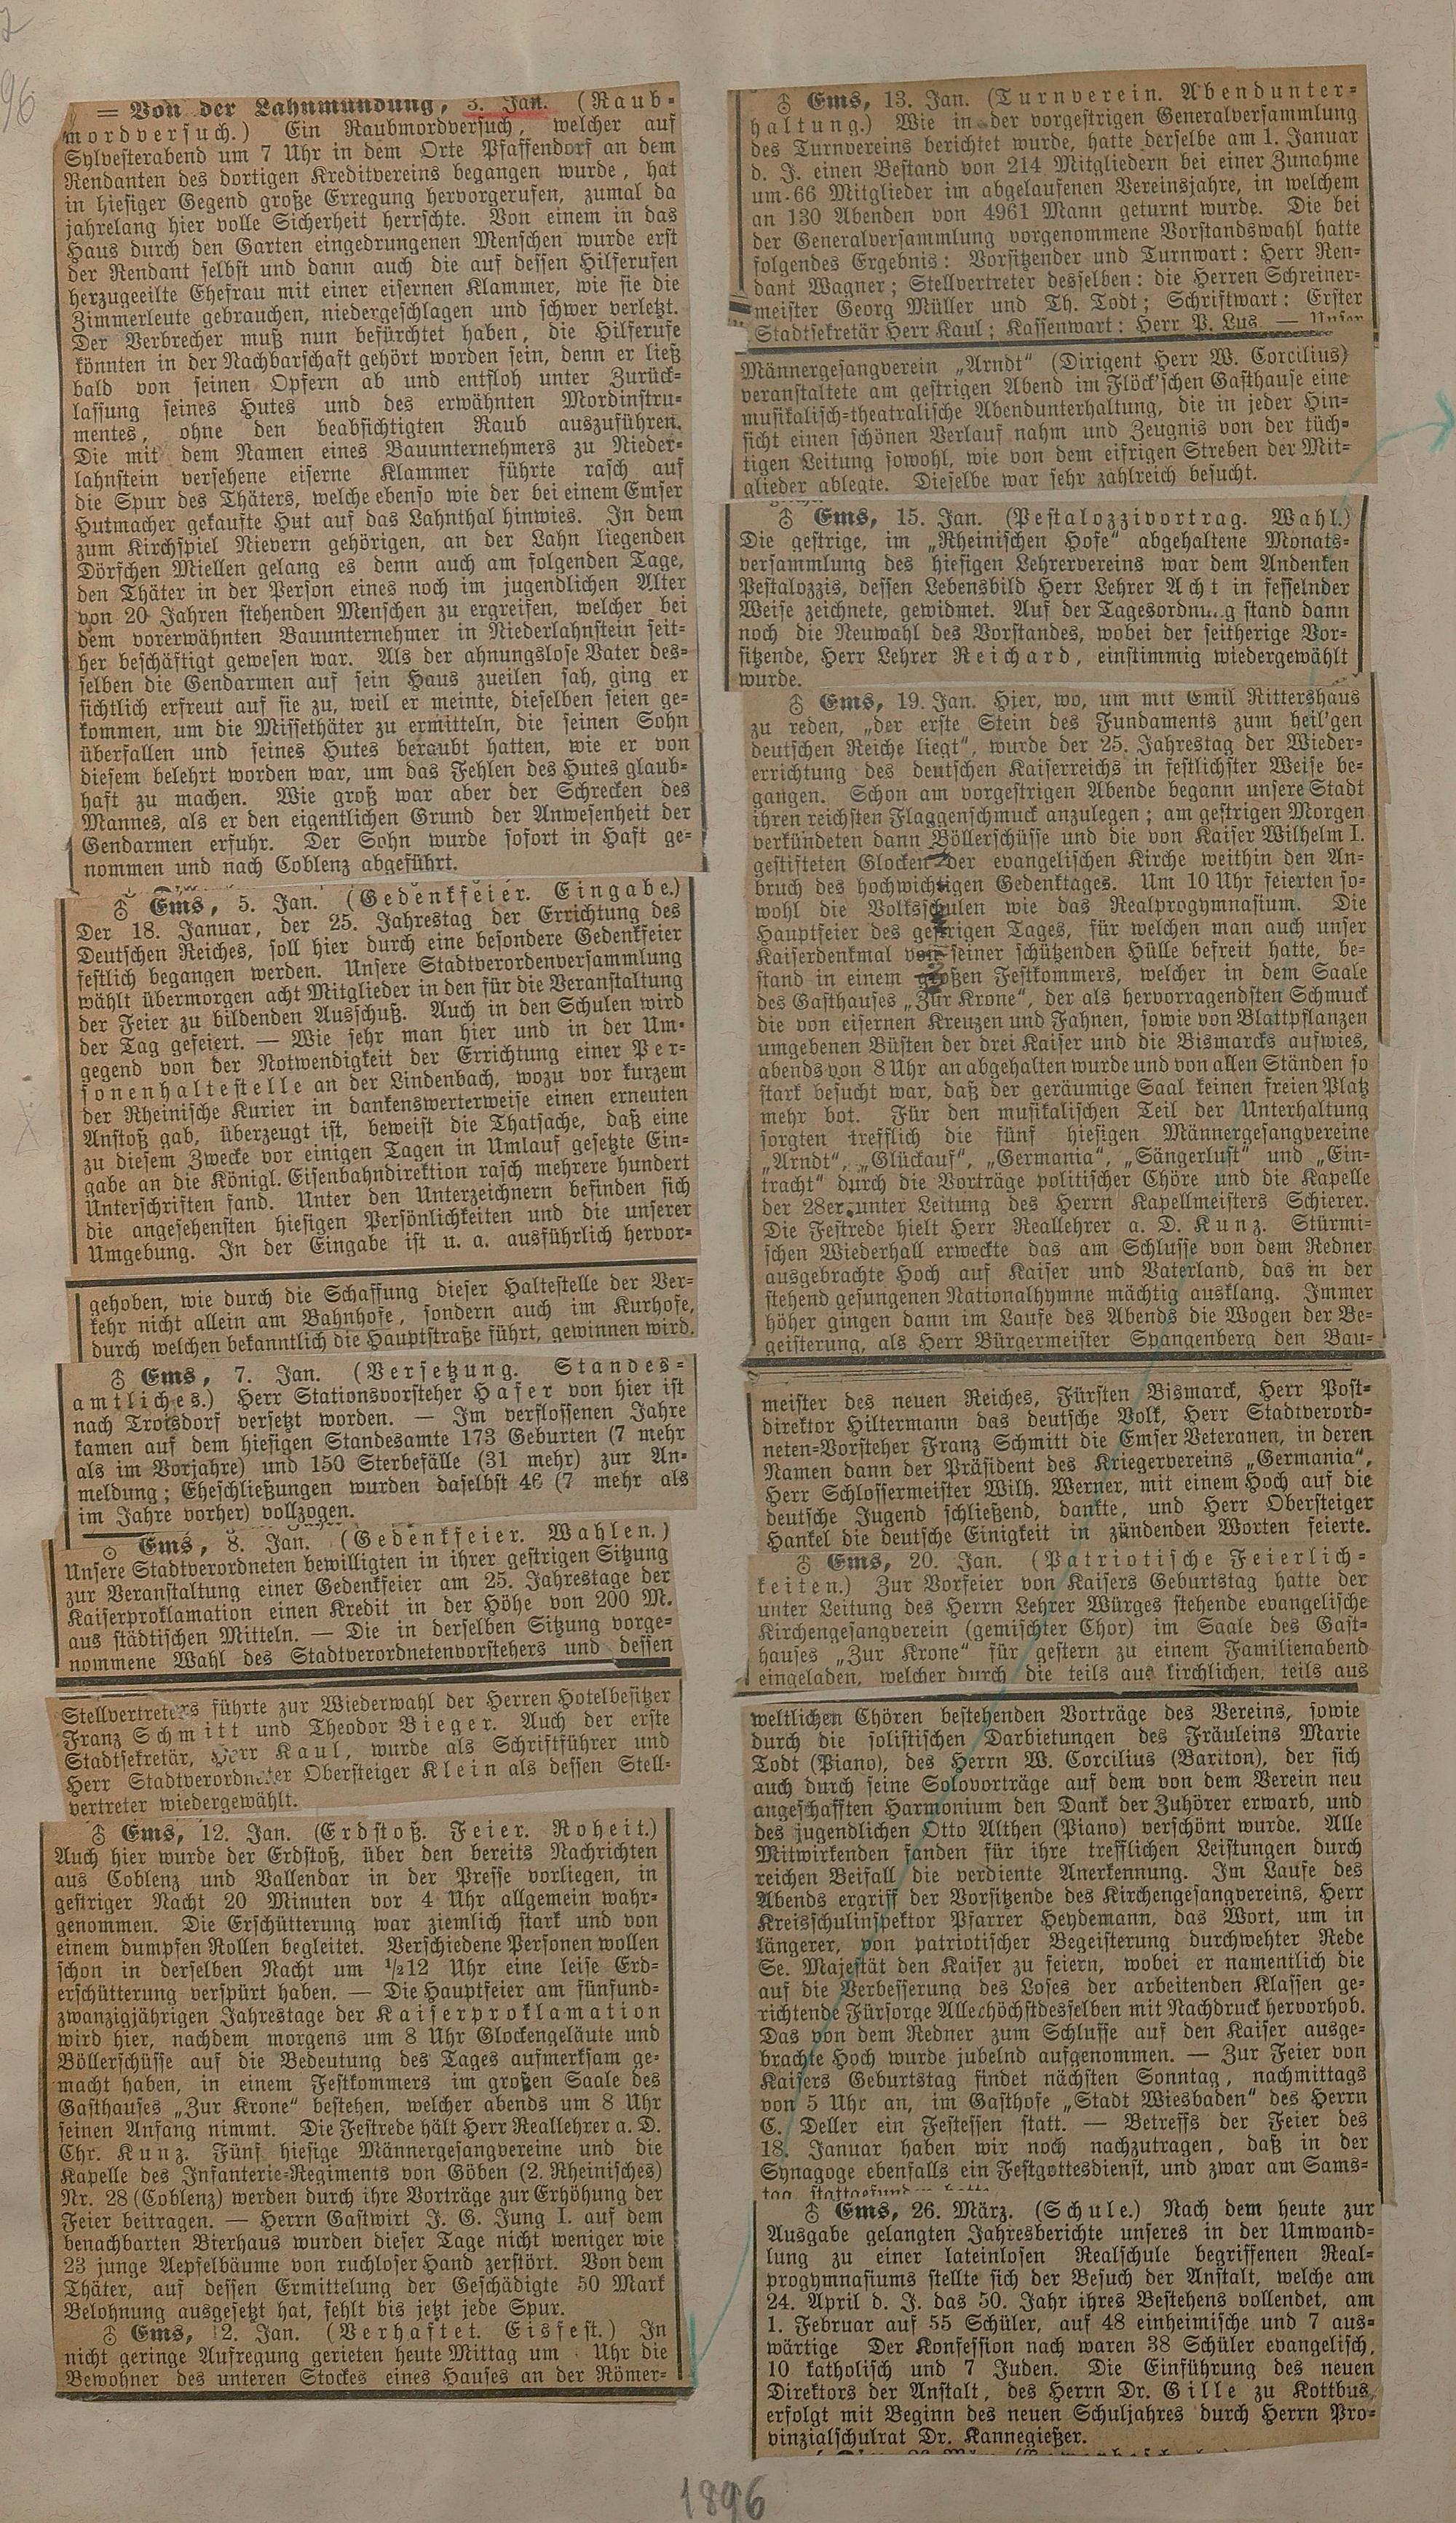 96
= Von der Lahnmündung, 3. Jan. (Raub-
mordversuch.) Ein Raubmordversuch, welcher auf
Sylvesterabend um 7 Uhr in dem Orte Pfaffendorf an dem
Rendanten des dortigen Kreditvereins begangen wurde, hat
in hiesiger Gegend große Erregung hervorgerufen, zumal da
jahrelang hier volle Sicherheit herrschte. Von einem in das
Haus durch den Garten eingedrungenen Menschen wurde erst
der Rendant selbst und dann auch die auf dessen Hilferufen
herzugeeilte Ehefrau mit einer eisernen Klammer, wie sie die
Zimmerleute gebrauchen, niedergeschlagen und schwer verletzt.
Der Verbrecher muß nun befürchtet haben, die Hilferufe
könnten in der Nachbarschaft gehört worden sein, denn er ließ
bald von seinen Opfern ab und entfloh unter Zurück-
lassung seines Hutes und des erwähnten Mordinstru-
mentes, ohne den beabsichtigten Raub auszuführen.
Die mit dem Namen eines Bauunternehmers zu Nieder-
lahnstein versehene eiserne Klammer führte rasch auf
die Spur des Thäters, welche ebenso wie der bei einem Emser
Hutmacher gekaufte Hut auf das Lahnthal hinwies. In dem
zum Kirchspiel Nievern gehörigen, an der Lahn liegenden
Dörfchen Miellen gelang es denn auch am folgenden Tage,
den Thäter in der Person eines noch im jugendlichen Alter
von 20 Jahren stehenden Menschen zu ergreifen, welcher bei
dem vorerwähnten Bauunternehmer in Niederlahnstein seit-
her beschäftigt gewesen war. Als der ahnungslose Vater des-
selben die Gendarmen auf sein Haus zueilen sah, ging er
sichtlich erfreut auf sie zu, weil er meinte, dieselben seien ge-
kommen, um die Missethäter zu ermitteln, die seinen Sohn
überfallen und seines Hutes beraubt hatten, wie er von
diesem belehrt worden war, um das Fehlen des Hutes glaub-
haft zu machen. Wie groß war aber der Schrecken des
Mannes, als er den eigentlichen Grund der Anwesenheit der
Gendarmen erfuhr. Der Sohn wurde sofort in Haft ge-
nommen und nach Coblenz abgeführt.
♁ Ems, 5. Jan. (Gedenkfeier. Eingabe.)
Der 18. Januar, der 25. Jahrestag der Errichtung des
Deutschen Reiches, soll hier durch eine besondere Gedenkfeier
festlich begangen werden. Unsere Stadtverordenversammlung
wählt übermorgen acht Mitglieder in den für die Veranstaltung
der Feier zu bildenden Ausschuß. Auch in den Schulen wird
der Tag gefeiert. — Wie sehr man hier und in der Um-
gegend von der Notwendigkeit der Errichtung einer Per-
sonenhaltestelle an der Lindenbach, wozu vor kurzem
der Rheinische Kurier in dankenswerterweise einen erneuten
Anstoß gab, überzeugt ist, beweist die Thatsache, daß eine
zu diesem Zwecke vor einigen Tagen in Umlauf gesetzte Ein-
gabe an die Königl. Eisenbahndirektion rasch mehrere hundert
Unterschriften fand. Unter den Unterzeichnern befinden sich
die angesehensten hiesigen Persönlichkeiten und die unserer
Umgebung. In der Eingabe ist u. a. ausführlich hervor-
gehoben, wie durch die Schaffung dieser Haltestelle der Ver-
kehr nicht allein am Bahnhofe, sondern auch im Kurhofe,
durch welchen bekanntlich die Hauptstraße führt, gewinnen wird.
♁ Ems, 7. Jan. (Versetzung. Standes-
amtliches.) Herr Stationsvorsteher Hafer von hier ist
nach Troisdorf versetzt worden. — Im verflossenen Jahre
kamen auf dem hiesigen Standesamte 173 Geburten (7 mehr
als im Vorjahre) und 150 Sterbefälle (31 mehr) zur An-
meldung; Eheschließungen wurden daselbst 46 (7 mehr als
im Jahre vorher) vollzogen.
♁ Ems, 8. Jan. (Gedenkfeier. Wahlen.)
Unsere Stadtverordneten bewilligten in ihrer gestrigen Sitzung
zur Veranstaltung einer Gedenkfeier am 25. Jahrestage der
Kaiserproklamation einen Kredit in der Höhe von 200 M.
aus städtischen Mitteln. — Die in derselben Sitzung vorge-
nommene Wahl des Stadtverordnetenvorstehers und dessen
Stellvertreters führte zur Wiederwahl der Herren Hotelbesitzer
Franz Schmitt und Theodor Bieger. Auch der erste
Stadtsekretär, Herr Kaul, wurde als Schriftführer und
Herr Stadtverordneter Obersteiger Klein als dessen Stell-
vertreter wiedergewählt.
♁ Ems, 12. Jan. (Erdstoß. Feier. Roheit.)
Auch hier wurde der Erdstoß, über den bereits Nachrichten
aus Coblenz und Vallendar in der Presse vorliegen, in
gestriger Nacht 20 Minuten vor 4 Uhr allgemein wahr-
genommen. Die Erschütterung war ziemlich stark und von
einem dumpfen Rollen begleitet. Verschiedene Personen wollen
schon in derselben Nacht um ½12 Uhr eine leise Erd-
erschütterung verspürt haben. — Die Hauptfeier am fünfund-
zwanzigjährigen Jahrestage der Kaiserproklamation
wird hier, nachdem morgens um 8 Uhr Glockengeläute und
Böllerschüsse auf die Bedeutung des Tages aufmerksam ge-
macht haben, in einem Festkommers im großen Saale des
Gasthauses „Zur Krone“ bestehen, welcher abends um 8 Uhr
seinen Anfang nimmt. Die Festrede hält Herr Reallehrer a. D.
Chr. Kunz. Fünf hiesige Männergesangvereine und die
Kapelle des Infanterie-Regiments von Göben (2. Rheinisches)
Nr. 28 (Coblenz) werden durch ihre Vorträge zur Erhöhung der
Feier beitragen. — Herrn Gastwirt J. G. Jung I. auf dem
benachbarten Bierhaus wurden dieser Tage nicht weniger wie
23 junge Aepfelbäume von ruchloser Hand zerstört. Von dem
Thäter, auf dessen Ermittelung der Geschädigte 50 Mark
Belohnung ausgesetzt hat, fehlt bis jetzt jede Spur.
♁ Ems, 12. Jan. (Verhaftet. Eisfest.) In
nicht geringe Aufregung gerieten heute Mittag um Uhr die
Bewohner des unteren Stockes eines Hauses an der Römer-
♁ Ems, 13. Jan. (Turnverein. Abendunter-
haltung.) Wie in der vorgestrigen Generalversammlung
des Turnvereins berichtet wurde, hatte derselbe am 1. Januar
d. J. einen Bestand von 214 Mitgliedern bei einer Zunahme
um 66 Mitglieder im abgelaufenen Vereinsjahre, in welchem
an 130 Abenden von 4961 Mann geturnt wurde. Die bei
der Generalversammlung vorgenommene Vorstandswahl hatte
folgendes Ergebnis: Vorsitzender und Turnwart: Herr Ren-
dant Wagner; Stellvertreter desselben: die Herren Schreiner-
meister Georg Müller und Th. Todt; Schriftwart: Erster
Stadtsekretär Herr Kaul; Kassenwart: Herr P. Lus. — Unser
Männergesangverein „Arndt“ (Dirigent Herr W. Corcilius)
veranstaltete am gestrigen Abend im Flöck'schen Gasthause eine
musikalisch-theatralische Abendunterhaltung, die in jeder Hin-
sicht einen schönen Verlauf nahm und Zeugnis von der tüch-
tigen Leitung sowohl, wie von dem eifrigen Streben der Mit-
glieder ablegte. Dieselbe war sehr zahlreich besucht.
♁ Ems, 15. Jan. (Pestalozzivortrag. Wahl.)
Die gestrige, im „Rheinischen Hofe“ abgehaltene Monats-
versammlung des hiesigen Lehrervereins war dem Andenken
Pestalozzis, dessen Lebensbild Herr Lehrer Acht in fesselnder
Weise zeichnete, gewidmet. Auf der Tagesordnung stand dann
noch die Neuwahl des Vorstandes, wobei der seitherige Vor-
sitzende, Herr Lehrer Reichard, einstimmig wiedergewählt
wurde.
♁ Ems, 19. Jan. Hier, wo, um mit Emil Rittershaus
zu reden, „der erste Stein des Fundaments zum heil'gen
deutschen Reiche liegt“, wurde der 25. Jahrestag der Wieder-
errichtung des deutschen Kaiserreichs in festlichster Weise be-
gangen. Schon am vorgestrigen Abende begann unsere Stadt
ihren reichsten Flaggenschmuck anzulegen; am gestrigen Morgen
verkündeten dann Böllerschüsse und die von Kaiser Wilhelm I.
gestifteten Glocken der evangelischen Kirche weithin den An-
bruch des hochwichtigen Gedenktages. Um 10 Uhr feierten so-
wohl die Volksschulen wie das Realprogymnasium. Die
Hauptfeier des gestrigen Tages, für welchen man auch unser
Kaiserdenkmal von seiner schützenden Hülle befreit hatte, be-
stand in einem großen Festkommers, welcher in dem Saale
des Gasthauses „Zur Krone“, der als hervorragendsten Schmuck
die von eisernen Kreuzen und Fahnen, sowie von Blattpflanzen
umgebenen Büsten der drei Kaiser und die Bismarcks aufwies,
abends von 8 Uhr an abgehalten wurde und von allen Ständen so
stark besucht war, daß der geräumige Saal keinen freien Platz
mehr bot. Für den musikalischen Teil der Unterhaltung
sorgten trefflich die fünf hiesigen Männergesangvereine
„Arndt“, „Glückauf“, „Germania“, „Sängerlust“ und „Ein-
tracht“ durch die Vorträge politischer Chöre und die Kapelle
der 28er unter Leitung des Herrn Kapellmeisters Schierer.
Die Festrede hielt Herr Reallehrer a. D. Kunz. Stürmi-
schen Wiederhall erweckte das am Schlusse von dem Redner
ausgebrachte Hoch auf Kaiser und Vaterland, das in der
stehend gesungenen Nationalhymne mächtig ausklang. Immer
höher gingen dann im Laufe des Abends die Wogen der Be-
geisterung, als Herr Bürgermeister Spangenberg den Bau-
meister des neuen Reiches, Fürsten Bismarck, Herr Post-
direktor Hiltermann das deutsche Volk, Herr Stadtverord-
neten-Vorsteher Franz Schmitt die Emser Veteranen, in deren
Namen dann der Präsident des Kriegervereins „Germania“,
Herr Schlossermeister Wilh. Werner, mit einem Hoch auf die
deutsche Jugend schließend, dankte, und Herr Obersteiger
Hankel die deutsche Einigkeit in zündenden Worten feierte.
♁ Ems, 20. Jan. (Patriotische Feierlich-
keiten.) Zur Vorfeier von Kaisers Geburtstag hatte der
unter Leitung des Herrn Lehrer Würges stehende evangelische
Kirchengesangverein (gemischter Chor) im Saale des Gast-
hauses „Zur Krone“ für gestern zu einem Familienabend
eingeladen, welcher durch die teils aus kirchlichen, teils aus
weltlichen Chören bestehenden Vorträge des Vereins, sowie
durch die solistischen Darbietungen des Fräuleins Marie
Todt (Piano), des Herrn W. Corcilius (Bariton), der sich
auch durch seine Solovorträge auf dem von dem Verein neu
angeschafften Harmonium den Dank der Zuhörer erwarb, und
des jugendlichen Otto Althen (Piano) verschönt wurde. Alle
Mitwirkenden fanden für ihre trefflichen Leistungen durch
reichen Beifall die verdiente Anerkennung. Im Laufe des
Abends ergriff der Vorsitzende des Kirchengesangvereins, Herr
Kreisschulinspektor Pfarrer Heydemann, das Wort, um in
längerer, von patriotischer Begeisterung durchwehter Rede
Se. Majestät den Kaiser zu feiern, wobei er namentlich die
auf die Verbesserung des Loses der arbeitenden Klassen ge-
richtende Fürsorge Allerhöchstdesselben mit Nachdruck hervorhob.
Das von dem Redner zum Schlusse auf den Kaiser ausge-
brachte Hoch wurde jubelnd aufgenommen. — Zur Feier von
Kaisers Geburtstag findet nächsten Sonntag, nachmittags
von 5 Uhr an, im Gasthofe „Stadt Wiesbaden“ des Herrn
C. Deller ein Festessen statt. — Betreffs der Feier des
18. Januar haben wir noch nachzutragen, daß in der
Synagoge ebenfalls ein Festgottesdienst, und zwar am Sams-
tag, stattgefunden hatte.
♁ Ems, 26. März. (Schule.) Nach dem heute zur
Ausgabe gelangten Jahresberichte unseres in der Umwand-
lung zu einer lateinlosen Realschule begriffenen Real-
progymnasiums stellte sich der Besuch der Anstalt, welche am
24. April d. J. das 50. Jahr ihres Bestehens vollendet, am
1. Februar auf 55 Schüler, auf 48 einheimische und 7 aus-
wärtige Der Konfession nach waren 38 Schüler evangelisch,
10 katholisch und 7 Juden. Die Einführung des neuen
Direktors der Anstalt, des Herrn Dr. Gille zu Kottbus,
erfolgt mit Beginn des neuen Schuljahres durch Herrn Pro-
vinzialschulrat Dr. Kannegießer.
1896